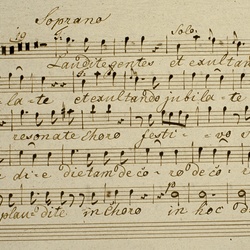 Soprano
19 Solo.
Laudite gentes et exultan
la-te et exultando jubila-te
resonate choro festi-vo
die dietam decō-ro decō-
plau-dite in choro in hoc